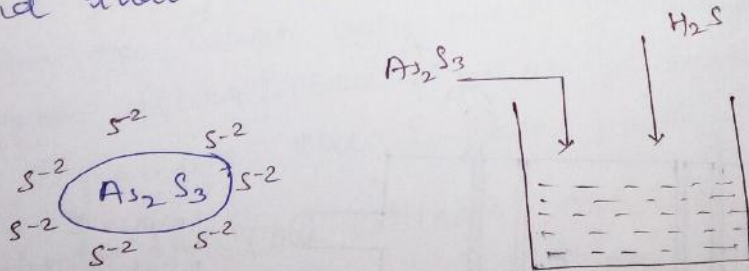 H₂S
As₂S₃
S⁻²
S⁻² S⁻²
S⁻² As₂S₃ S⁻²
S⁻² S⁻²
S⁻²